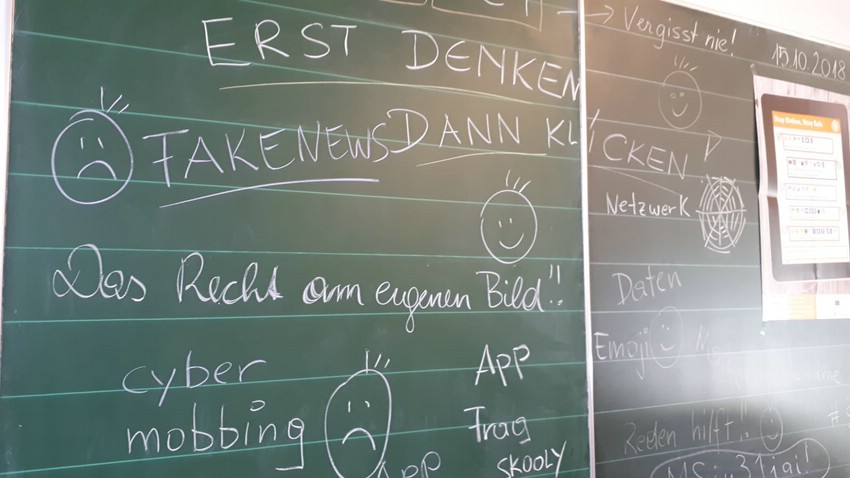 Vergisst nie!
15.10.2018
ERST DENKEN
DANN KLICKEN
FAKENEWS
Netzwerk
Das Recht am eugenen Bild!!
Daten
cyber
mobbing
App
Emoji
Frag
SKOOLY
Reden hilft!!
App